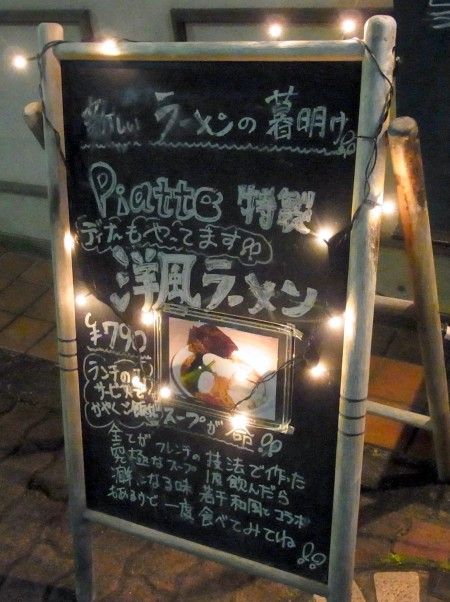 新しいラーメンの暮明け
Piatte 特製
ディナーもやってます
洋風ラーメン
¥790
ランチの
サービスで
かやくご飯
スープが命
全てがフレンチの技法で作った
究極なスープ 1度飲んだら
癖になる味 若干和風とコラボ
もあるので一度食べてみてね